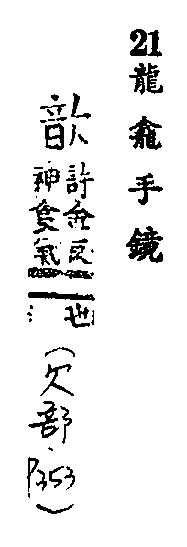 21龍龕手鏡
歆
許金反
神食氣
也
(欠部·P353)